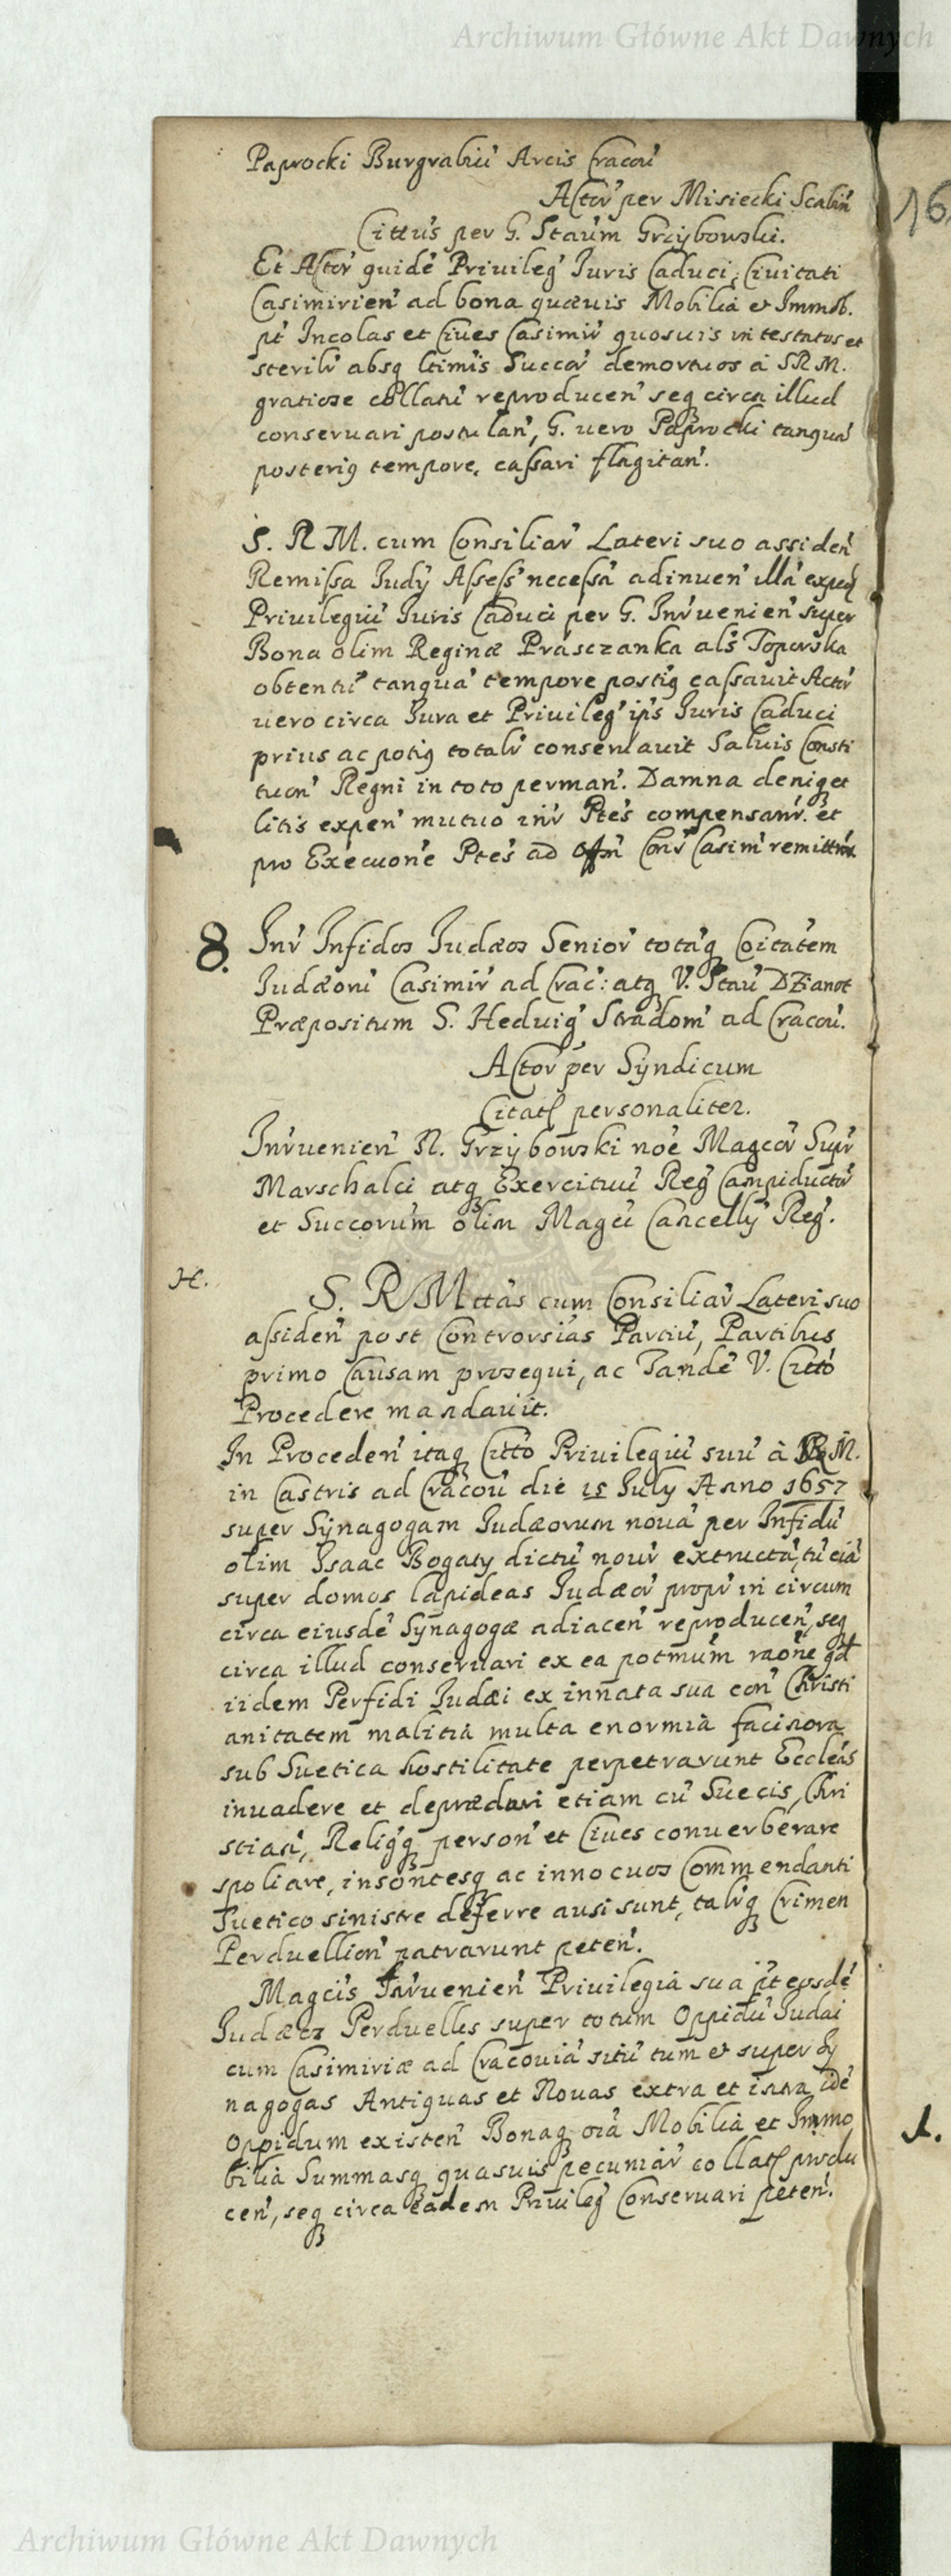 Archiwum Główne Akt Dawnych
Paprocki Burgrabiu' Arcis Cracou'
Actor' per Misiecki Scabin'
Cittus per G. Staum Grzybowski.
16
Et Actor' quide' Privileg' Iuris Caduci, Civitati
Casimirien' ad bona quævis Mobilia et Immob.
pt' Incolas et Cives Casimir' quosuis intestatos et
steriles absq ltimis Succor' demortuos à SRM.
gratiose collatu' reproducen' seq circa illud
conseruari postulan', G. uero Paprocki tanqua'
posterig tempore, cassari flagitan'.
S. R M. cum Consiliar' Lateri suo assiden'
Remissa Judy Assess' necessa' adinuen' illa'
Privilegiu' Iuris Caduci per G. Inr'uenien' super
Bona olim Reginæ Prasczanka als' Toporska
obtentu' tanqua' tempore postig cassauit Actor'
uero circa Iura et Privileg' ips' Iuris Caduci
prius ac potig totalr' conseruauit Saluis Consti
tuon' Regni in toto perman'. Damna deniq et
litis expen' mutuo inr' Ptes' compensanr'. et
pro Execuone Ptes' ad Offm' Cons' Casim' remittur'.
8. Inr' Infidos Judæos Senior' totaq Coitatem
Judæoru' Casimir' ad Crac: atq V. Stau' Dzianot
Præpositum S. Hedvig' Stradom' ad Cracou'.
Actor' per Syndicum
Citatq personaliter.
Inr'uenien' N. Grzybowski noe' Magcor' Supr'
Marschalci atq Exercituu' Reg' Campiductor'
et Succorum olim Magci Cancelly Reg'.
H.
S. R Mttas cum Consiliar' Lateri suo
assiden' post Controvorsias Partiu', Partibus
primo Causam prosequi, ac Tande' V. Citto
Procedere mandauit.
In Proceden' itaq Citto Privilegiu' suu' à SRM.
in Castris ad Cracou' die 15 July Anno 1657
super Synagogam Judæorum noua' per Infidu'
olim Isaac Bogaty dictu' nour' extructa', tu' eia'
super domos lapideas Judæor' propr' in circum
circa eiusde' Synagogæ adiacen' reproducen', seq
circa illud conseruari ex ea potmum raone qd
iidem Perfidi Judæi ex innata sua con' Christi
anitatem malitia multa enormia facinora
sub Suetica hostilitate perpetrarunt Eccleas
inuadere et deprædari etiam cu' Suecis, Chri
stian', Religq person' et Cives conuerberare
spoliare, insontesq ac innocuos Commendanti
Suetico sinistre deferre ausi sunt, talrq Crimen
Perduellion' patrarunt peten'.
Magcis Inr'uenien' Privilegia sua pt eosde'
Judæos Perduelles super totum Oppidu' Judai
cum Casimiriæ ad Cracouia' situ' tum et super Sy
nagogas Antiquas et Nouas extra et intra ide'
Oppidum existen' Bonaq oia Mobilia et Immo
bilia Summasq quasuis pecuniar' collatq produ
cen', seq circa eadem Privileg' Conseruari peten'.
J.
Archiwum Główne Akt Dawnych